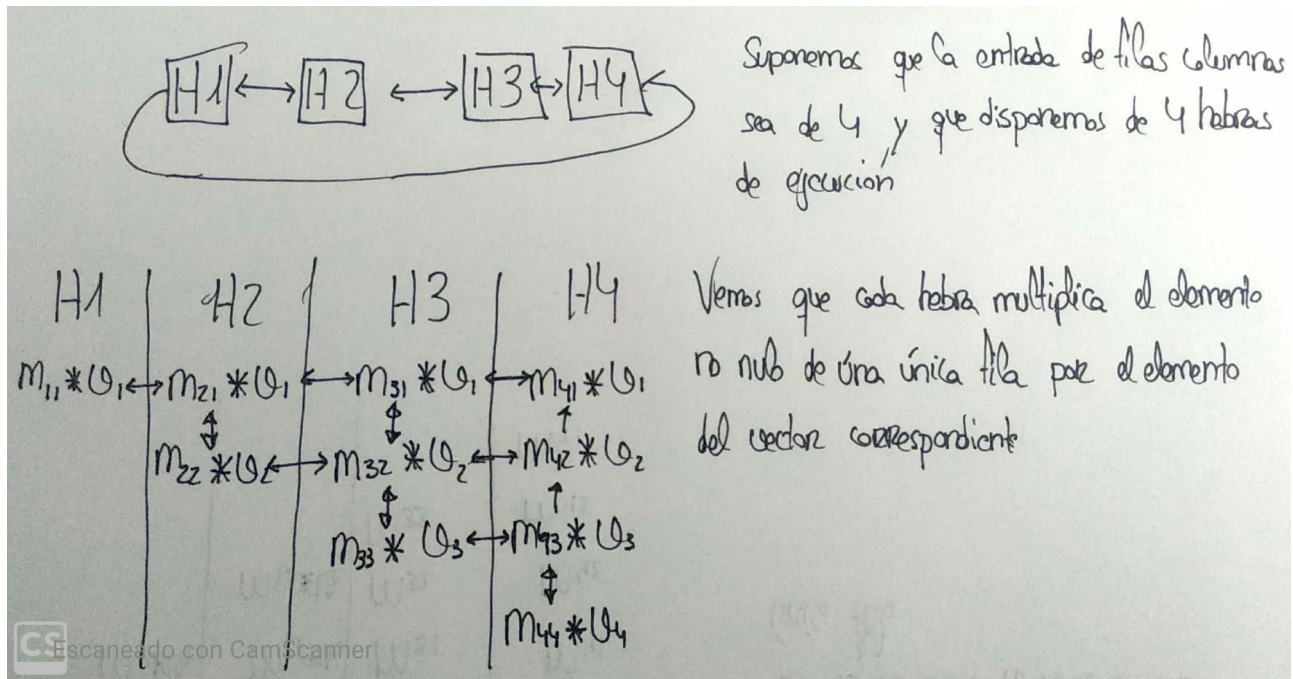 H1 ↔ H2 ↔ H3 ↔ H4
Suponemos que la entrada de filas columnas
sea de 4 y que disponemos de 4 hebras
de ejecución
H1 | H2 | H3 | H4
m₁₁*v₁ ↔ m₂₁*v₁ ↔ m₃₁*v₁ ↔ m₄₁*v₁
m₂₂*v₂ ↔ m₃₂*v₂ ↔ m₄₂*v₂
m₃₃*v₃ ↔ m₄₃*v₃
m₄₄*v₄
Vemos que cada hebra multiplica el elemento
no nulo de una única fila por el elemento
del vector correspondiente
CS Escaneado con CamScanner